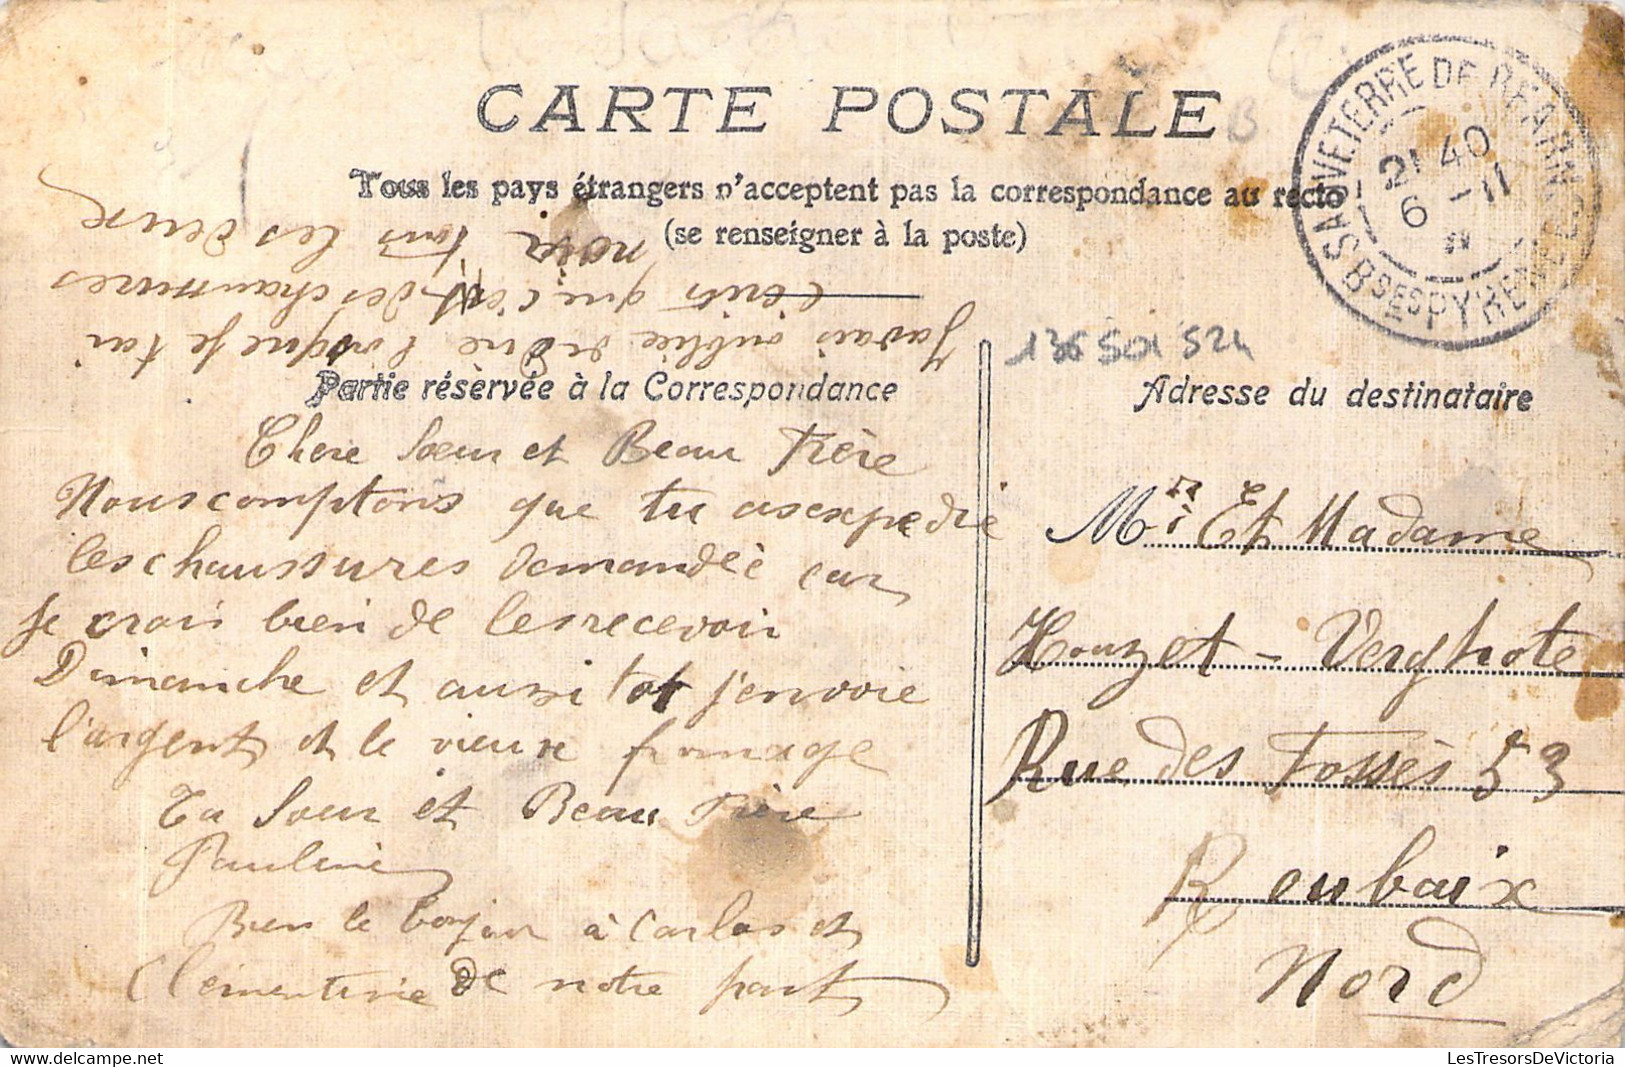 CARTE POSTALE
Tous les pays étrangers n'acceptent pas la correspondance au recto
(se renseigner à la poste)
SAUVETERRE DE BEARN
BSES PYRENEES
21 40
6 - 11
Javais oublié de dire lorsque je tai
écrit que c'est des chaussures
noir tous les deux
136 501 524
Partie réservée à la Correspondance
Adresse du destinataire
Chere Sœur et Beau Frère
Nous comptons que tu as expedie
les chaussures demandée car
je crois bien de les recevoir
Dimanche et aussi tot j'envoie
l'argent et le vieux fromage
Ta Sœur et Beau Frère
Pauline
Bien le bonjour à Carlos et
Clementine de notre part
Mr Et Madame
Houzet - Verghote
Rue des Fossès 53
Roubaix
Nord
LesTresorsDeVictoria